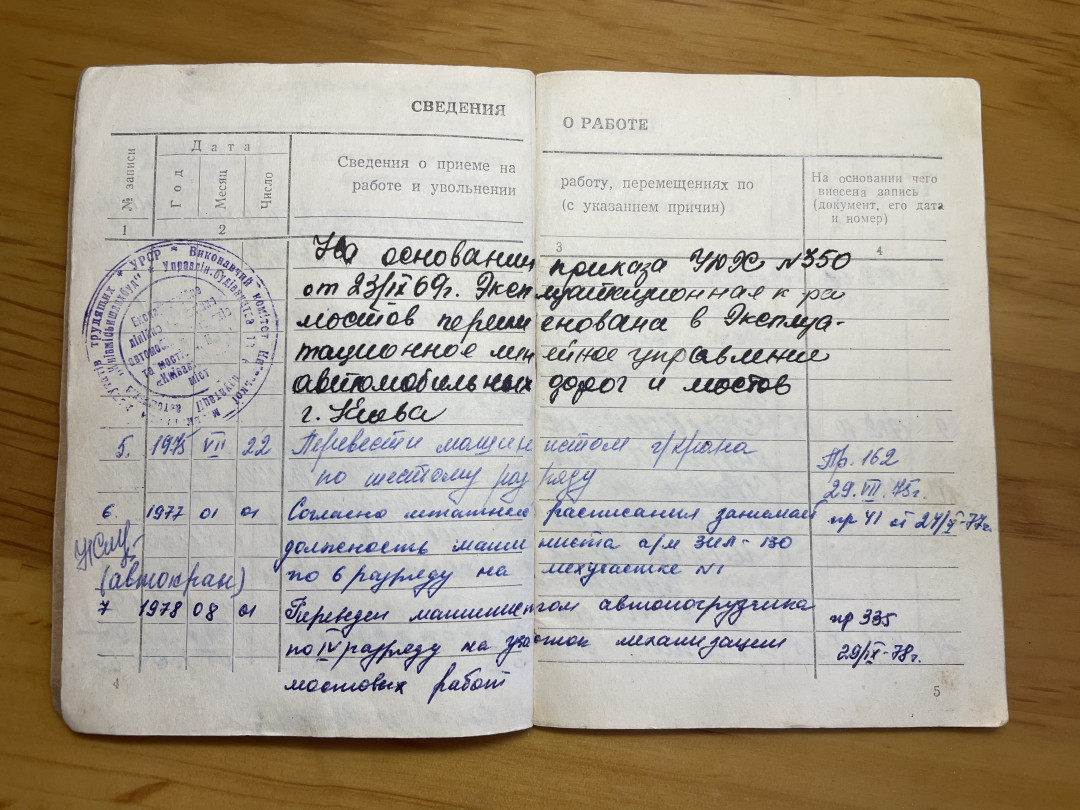 СВЕДЕНИЯ О РАБОТЕ
№ записи
Дата
Год
Месяц
Число
Сведения о приеме на работу, перемещениях по
работе и увольнении (с указанием причин)
На основании чего
внесена запись
(документ, его дата
и номер)
1 2 3 4
На основании приказа УЖХ №350
от 23/IX 69г. Эксплуатационная
мостов переименована в Эксплуа-
тационное линейное управление
автомобильных дорог и мостов
г. Киева
5. 1975 VII 22 Перевести машинистом а/крана Пр. 162
по шестому разряду 29.VII.75г.
6. 1977 01 01 Согласно штатного расписания занимает пр 41 от 24/ -77г.
должность машиниста а/м ЗИЛ-130
(автокран) по 6 разряду на мехучастке №1
7 1978 08 01 Переведен машинистом автопогрузчика пр 335
по IV разряду на участок механизации 29/IX-78г.
мостовых работ
трудящих * УРСР * Виконавчий комітет
Управлін.
автомоб
міст
4
5